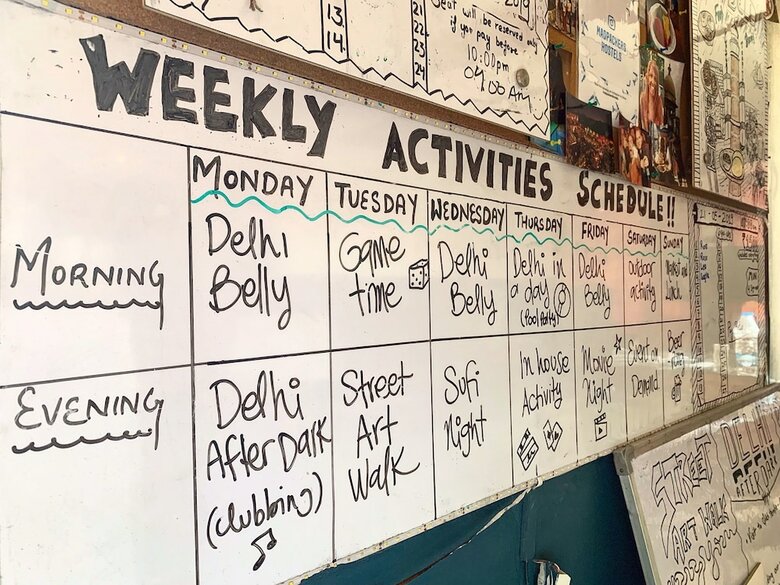 13.
14.
21
22
23
24
2019
Seat will be reserved only
if you pay before
10:00pm
MADPACKERS
HOSTELS
WEEKLY ACTIVITIES SCHEDULE!!
MONDAY TUESDAY WEDNESDAY THURSDAY FRIDAY SATURDAY SUNDAY
MORNING
Delhi
Belly
Game
time
Delhi
Belly
Delhi in
a day
(Pool Party)
Delhi
Belly
outdoor
activity
and
Lunch
EVENING
Delhi
After Dark
(clubbing)
Street
Art
Walk
Sufi
Night
In house
Activity
Movie
Night
Event on
Demand
Beer
21-05-2019
STREET
ART WALK
DELHI
AFTER DARK